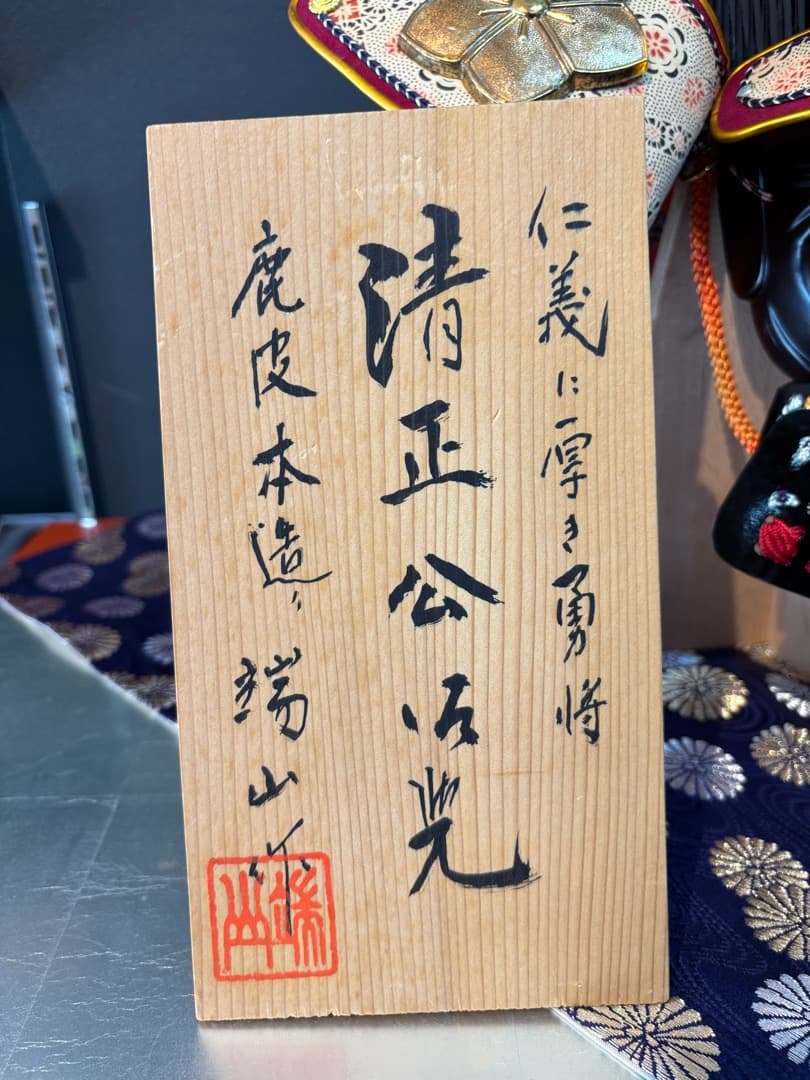 仁義に厚き勇将
清正公御兜
鹿皮本造り 端山作
端山